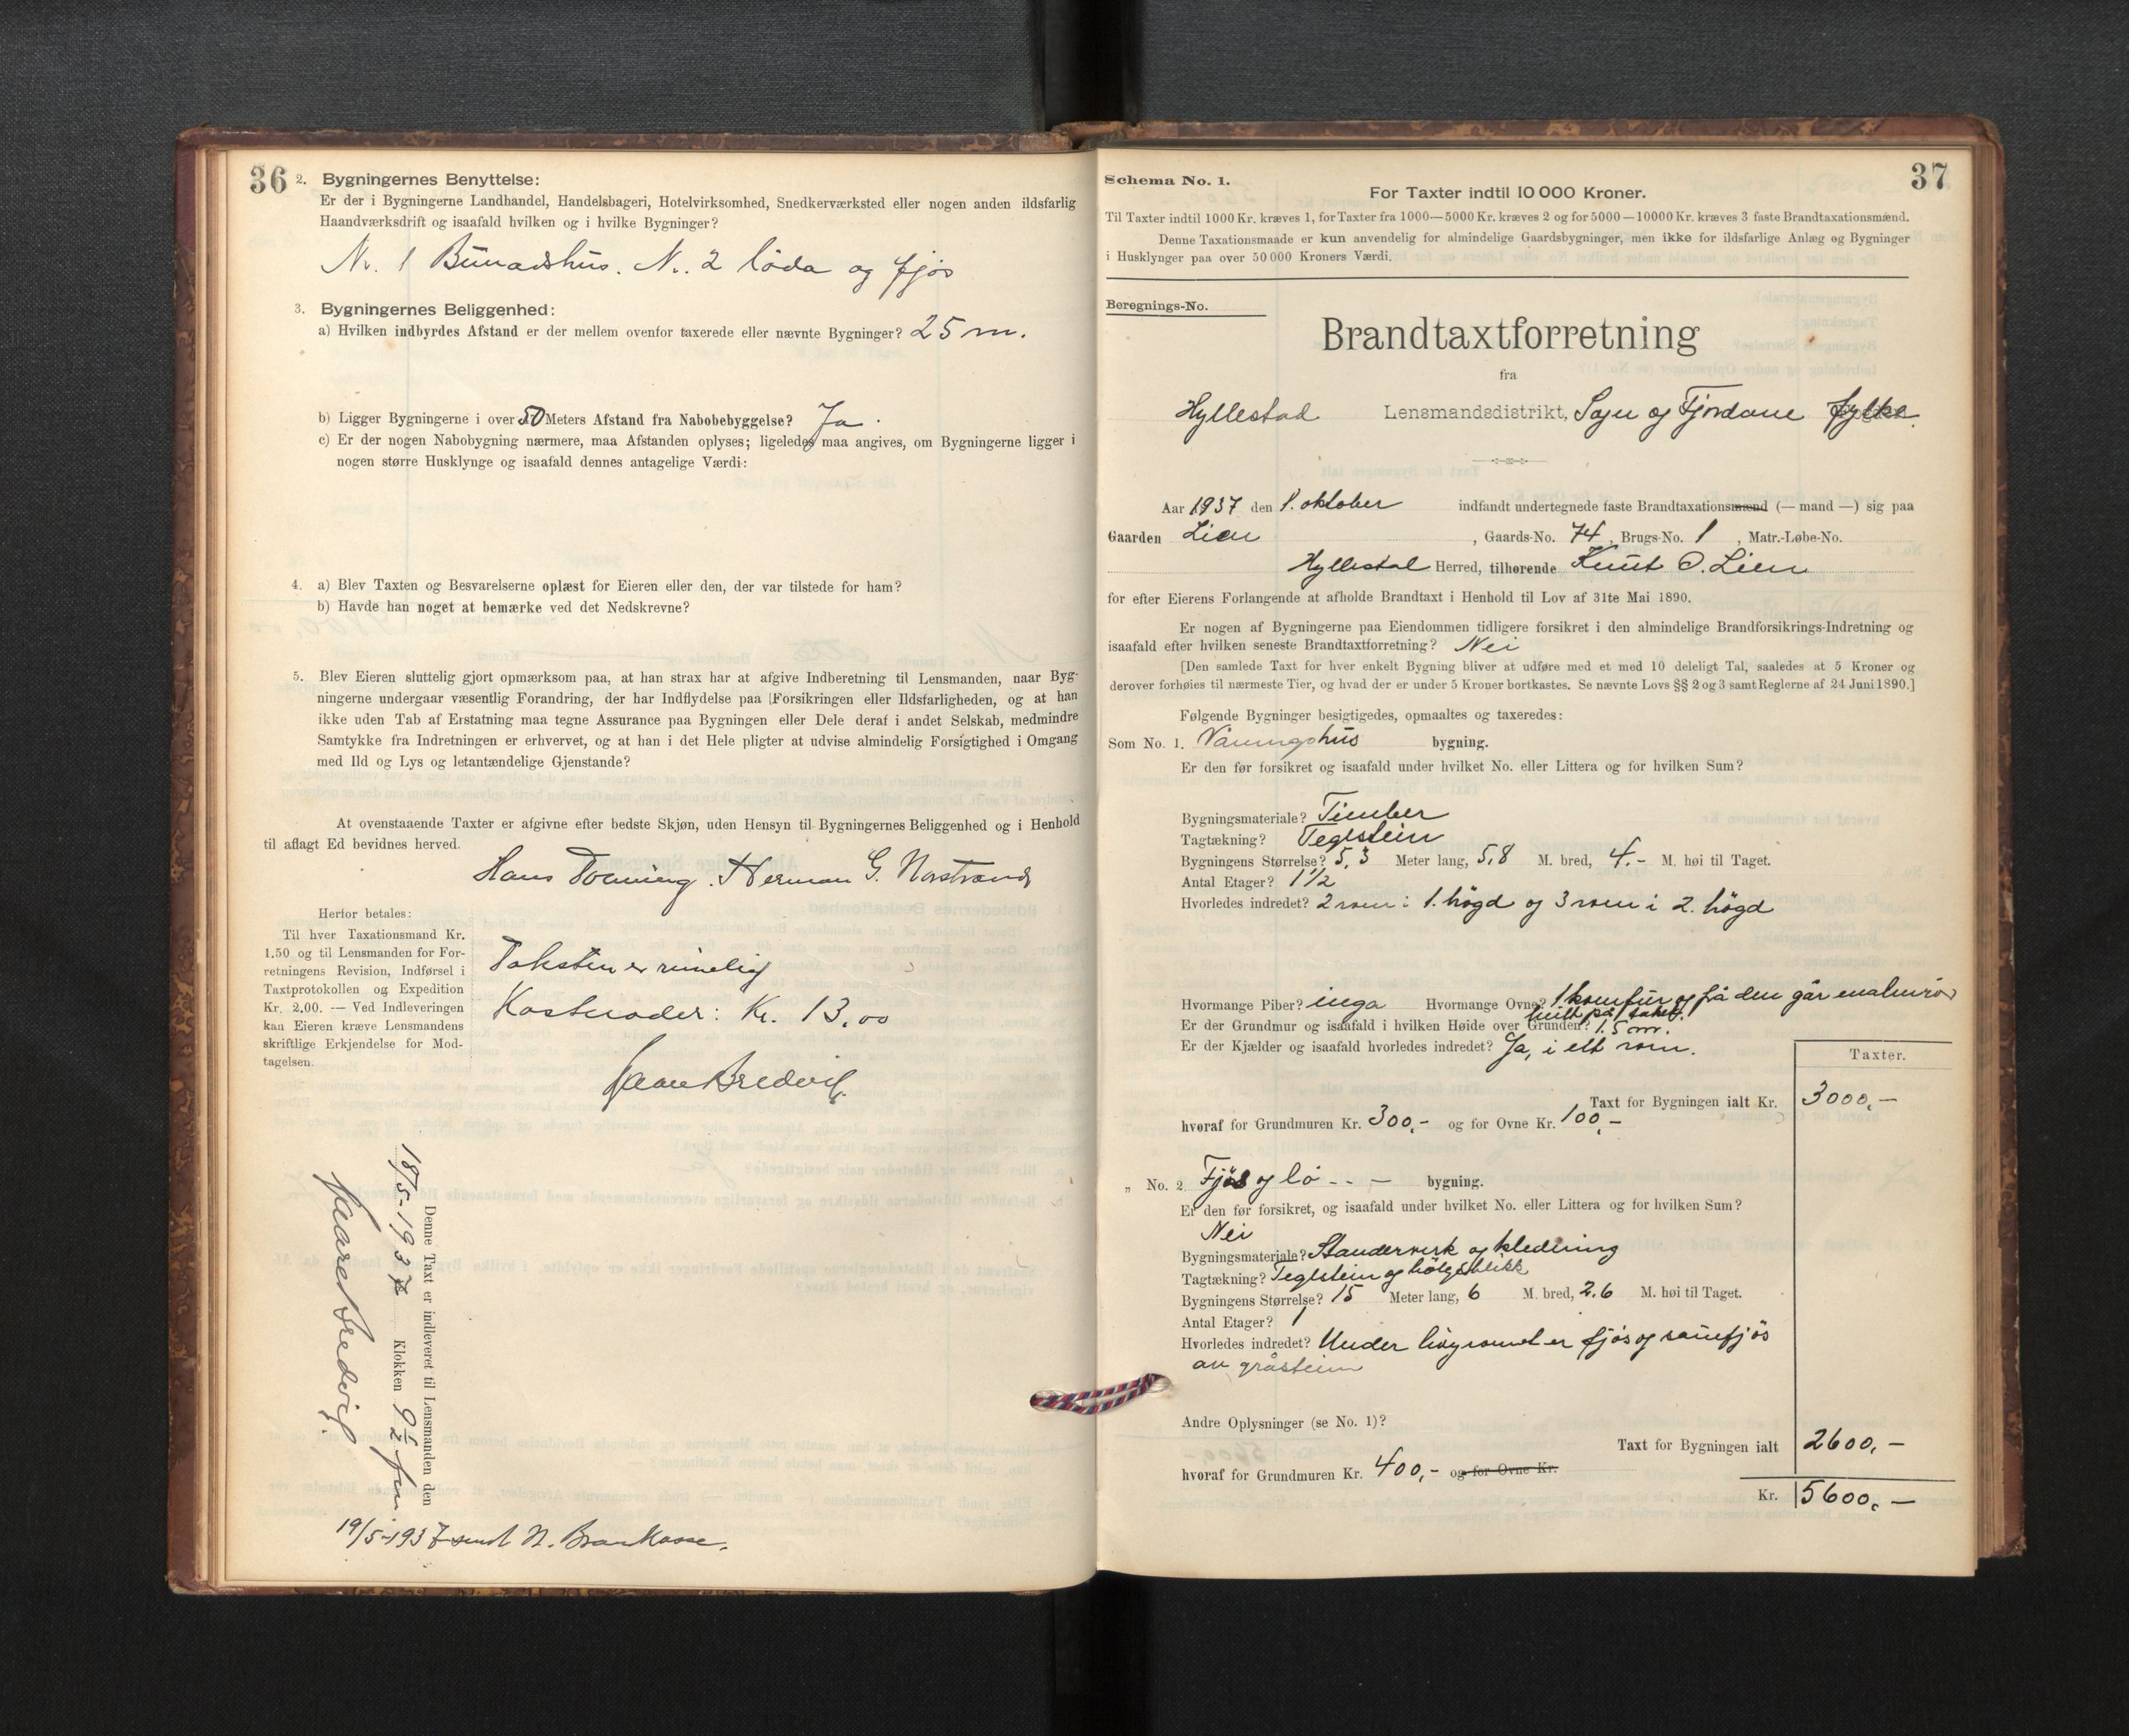 36
2. Bygningernes Benyttelse:
Er der i Bygningerne Landhandel, Handelsbageri, Hotelvirksomhed, Snedkerværksted eller nogen anden ildsfarlig
Haandværksdrift og isaafald hvilken og i hvilke Bygninger?
Nr. 1 Bunadshus. Nr. 2 löda og fjös
3. Bygningernes Beliggenhed:
a) Hvilken indbyrdes Afstand er der mellem ovenfor taxerede eller nævnte Bygninger? 25 m.
b) Ligger Bygningerne i over 50 Meters Afstand fra Nabobebyggelse? Ja.
c) Er der nogen Nabobygning nærmere, maa Afstanden oplyses; ligeledes maa angives, om Bygningerne ligger i
nogen større Husklynge og isaafald dennes antagelige Værdi:
4. a) Blev Taxten og Besvarelserne oplæst for Eieren eller den, der var tilstede for ham?
b) Havde han noget at bemærke ved det Nedskrevne?
5. Blev Eieren sluttelig gjort opmærksom paa, at han strax har at afgive Indberetning til Lensmanden, naar Byg-
ningerne undergaar væsentlig Forandring, der har Indflydelse paa Forsikringen eller Ildsfarligheden, og at han
ikke uden Tab af Erstatning maa tegne Assurance paa Bygningen eller Dele deraf i andet Selskab, medmindre
Samtykke fra Indretningen er erhvervet, og at han i det Hele pligter at udvise almindelig Forsigtighed i Omgang
med Ild og Lys og letantændelige Gjenstande?
At ovenstaaende Taxter er afgivne efter bedste Skjøn, uden Hensyn til Bygningernes Beliggenhed og i Henhold
til aflagt Ed bevidnes herved.
Hans Herman G. Norstrand
Herfor betales:
Til hver Taxationsmand Kr.
1.50 og til Lensmanden for For-
retningens Revision, Indførsel i
Taxtprotokollen og Expedition
Kr. 2.00. — Ved Indleveringen
kan Eieren kræve Lensmandens
skriftlige Erkjendelse for Mod-
tagelsen.
Taksten er rimelig
Kostnader: Kr. 13.00
Denne Taxt er indleveret til Lensmanden den
18/5-1937 Klokken 9 1/2 fm
19/5-1937 sendt N. Brankasse.
37
Schema No. 1.
For Taxter indtil 10 000 Kroner.
Til Taxter indtil 1000 Kr. kræves 1, for Taxter fra 1000—5000 Kr. kræves 2 og for 5000—10000 Kr. kræves 3 faste Brandtaxationsmænd.
Denne Taxationsmaade er kun anvendelig for almindelige Gaardsbygninger, men ikke for ildsfarlige Anlæg og Bygninger
i Husklynger paa over 50 000 Kroners Værdi.
Beregnings-No.
Brandtaxtforretning
fra
Hyllestad Lensmandsdistrikt, Sogn og Fjordane fylke.
Aar 1937 den 1. oktober indfandt undertegnede faste Brandtaxationsmænd (— mand —) sig paa
Gaarden Lien, Gaards-No. 74, Brugs-No. 1, Matr.-Løbe-No.
Hyllestad Herred, tilhørende Knut O. Lien
for efter Eierens Forlangende at afholde Brandtaxt i Henhold til Lov af 31te Mai 1890.
Er nogen af Bygningerne paa Eiendommen tidligere forsikret i den almindelige Brandforsikrings-Indretning og
isaafald efter hvilken seneste Brandtaxtforretning? Nei
[Den samlede Taxt for hver enkelt Bygning bliver at udføre med et med 10 deleligt Tal, saaledes at 5 Kroner og
derover forhøies til nærmeste Tier, og hvad der er under 5 Kroner bortkastes. Se nævnte Lovs §§ 2 og 3 samt Reglerne af 24 Juni 1890.]
Følgende Bygninger besigtigedes, opmaaltes og taxeredes:
Som No. 1. Våningshus bygning.
Er den før forsikret og isaafald under hvilket No. eller Littera og for hvilken Sum?
Bygningsmateriale? Timber
Tagtækning? Teglstein
Bygningens Størrelse? 5,3 Meter lang, 5,8 M. bred, 4.- M. høi til Taget.
Antal Etager? 1 1/2
Hvorledes indredet? 2 rom i 1. högd og 3 rom i 2. högd
Hvormange Piber? inga Hvormange Ovne? 1 komfur og frå den går malmrör
Er der Grundmur og isaafald i hvilken Høide over Grunden? 1.5 m.
Er der Kjælder og isaafald hvorledes indredet? Ja, i ett rom.
Taxter.
Taxt for Bygningen ialt Kr. 3000,—
hvoraf for Grundmuren Kr. 300,- og for Ovne Kr. 100,—
„ No. 2 Fjös og lö - - — bygning.
Er den før forsikret, og isaafald under hvilket No. eller Littera og for hvilken Sum?
Nei
Bygningsmateriale? Standerverk og kledning
Tagtækning? Teglstein og bölgeblikk
Bygningens Størrelse? 15 Meter lang, 6 M. bred, 2.6 M. høi til Taget.
Antal Etager? 1
Hvorledes indredet? Under höyromet er fjös og sauefjös
av gråstein
Andre Oplysninger (se No. 1)?
Taxt for Bygningen ialt 2600,—
hvoraf for Grundmuren Kr. 400,- og for Ovne Kr.
Kr. 5600,—